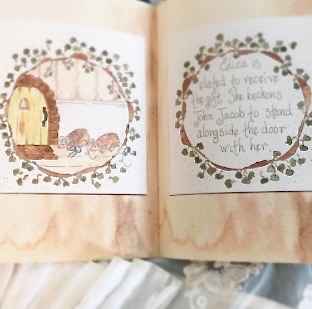 Eliza is
elated to receive
the gift. She beckons
John Jacob to stand
alongside the door
with her.